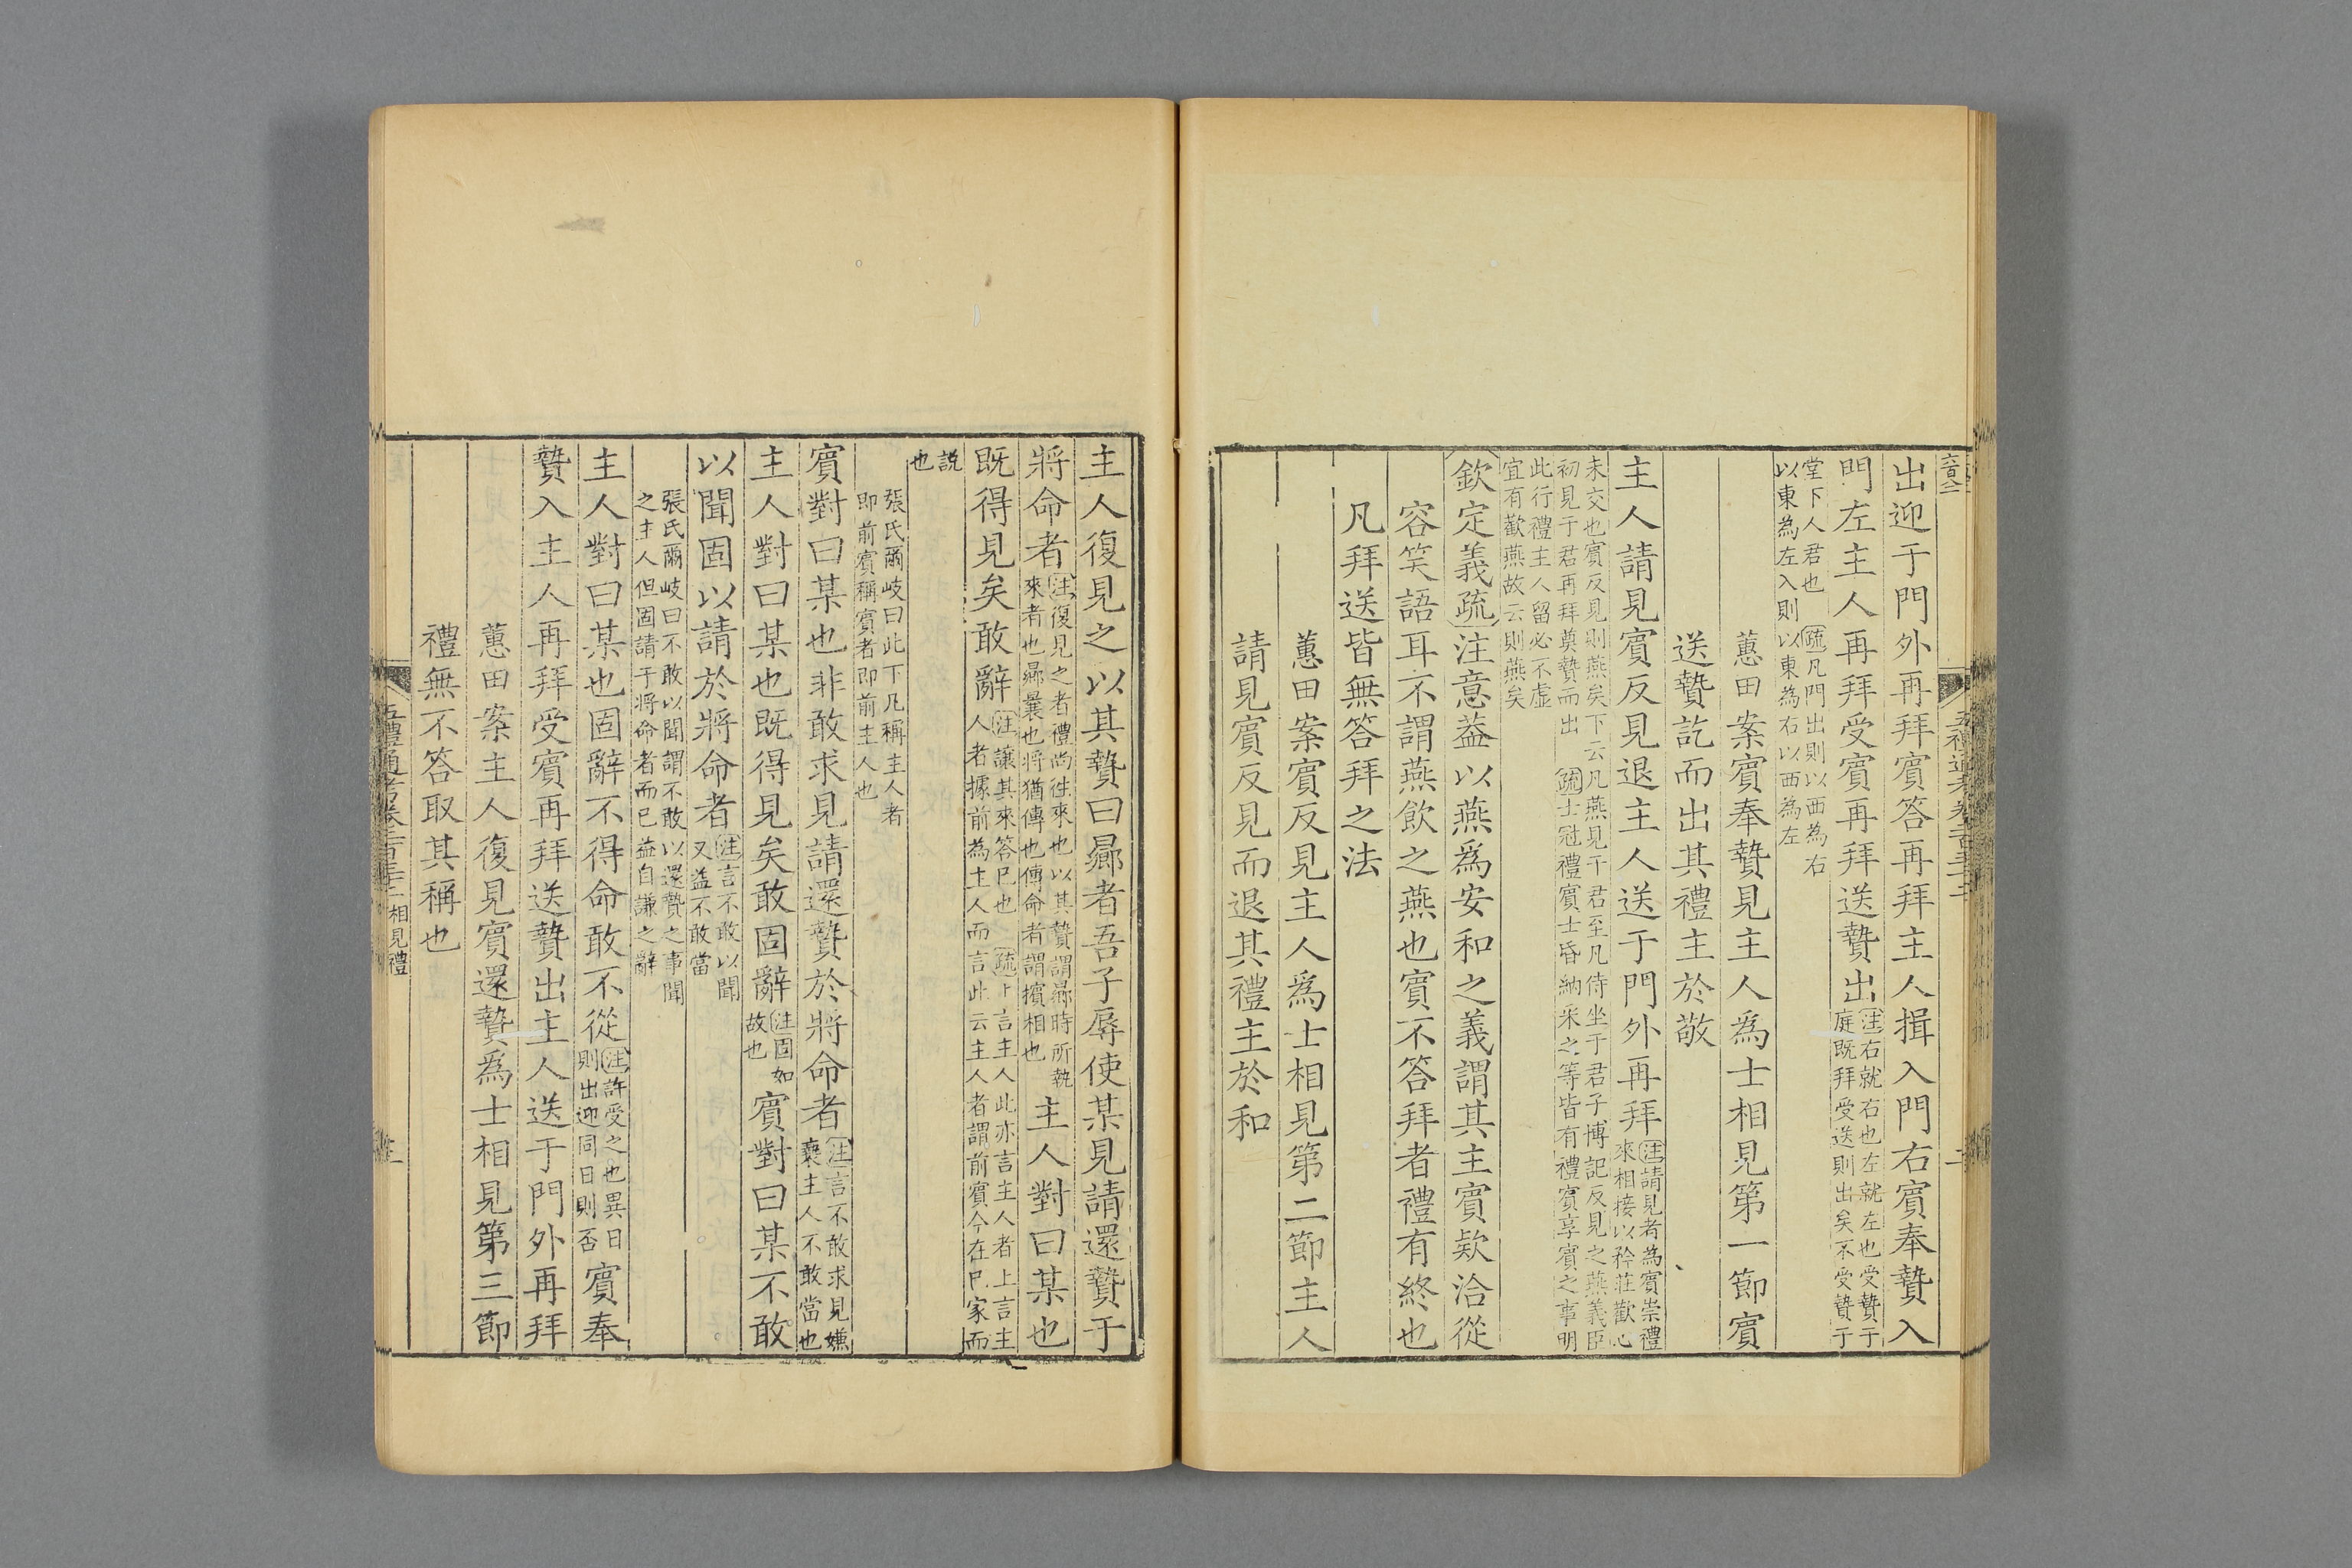 出迎于門外再拜賓答再拜主人揖入門右賓奉贄入
門左主人再拜受賓再拜送贄出注右就右也左就左也受贄于庭既拜受送則出矣不受贄于
堂下人君也 疏凡門出則以西為右以東為左入則以東為右以西為左
蕙田案賓奉贄見主人爲士相見第一節賓
送贄訖而出其禮主於敬
主人請見賓反見退主人送于門外再拜注請見者為賓崇禮來相接以矜莊歡心
未交也賓反見則燕矣下云凡燕見于君至凡侍坐于君子博記反見之燕義臣初見于君再拜奠贄而出 疏士冠禮賓士昏納采之等皆有禮賓享賓之事明
此行禮主人留必不虛宜有歡燕故云則燕矣
欽定義疏注意葢以燕爲安和之義謂其主賓欵洽從
容笑語耳不謂燕飲之燕也賓不答拜者禮有終也
凡拜送皆無答拜之法
蕙田案賓反見主人爲士相見第二節主人
請見賓反見而退其禮主於和
主人復見之以其贄曰曏者吾子辱使某見請還贄于
將命者注復見之者禮尚往來也以其贄謂曏時所執來者也曏曩也將猶傳也傳命者謂擯相也主人對曰某也
既得見矣敢辭注讓其來答己也 疏上言主人此亦言主人者上言主人者據前為主人而言此云主人者謂前賓今在己家而
說也
張氏爾岐曰此下凡稱主人者即前賓稱賓者即前主人也
賓對曰某也非敢求見請還贄於將命者注言不敢求見嫌褻主人不敢當也
主人對曰某也既得見矣敢固辭注固如故也賓對曰某不敢
以聞固以請於將命者注言不敢以聞又益不敢當
張氏爾岐曰不敢以聞謂不敢以還贄之事聞之主人但固請于將命者而已益自謙之辭
主人對曰某也固辭不得命敢不從注許受之也異日則出迎同日則否賓奉
贄入主人再拜受賓再拜送贄出主人送于門外再拜
蕙田案主人復見賓還贄爲士相見第三節
禮無不答取其稱也
五禮通考卷二百三十二 相見禮